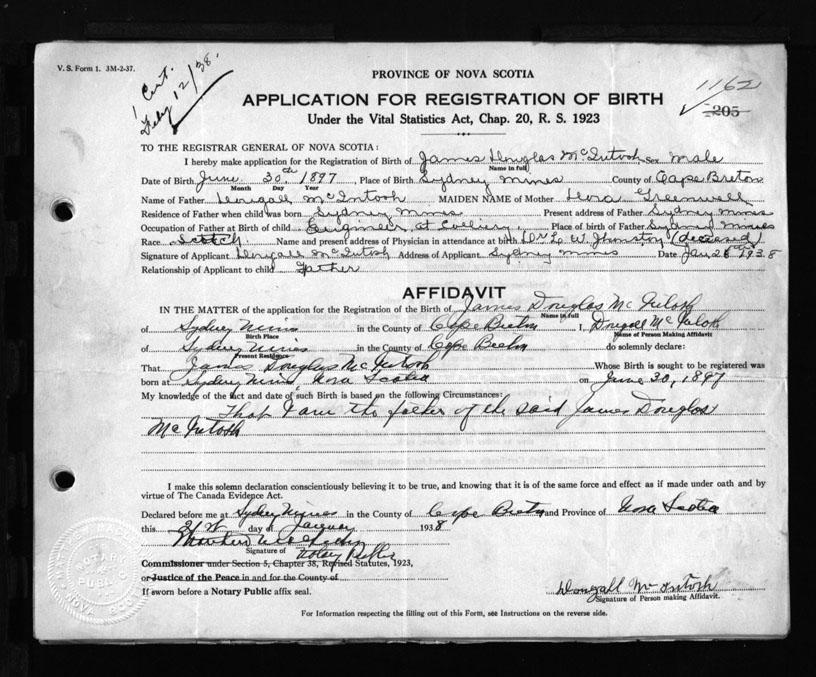 V. S. Form 1. 3M-2-37.
1 Cert.
Feby 12/38.
PROVINCE OF NOVA SCOTIA
1162
APPLICATION FOR REGISTRATION OF BIRTH
205
Under the Vital Statistics Act, Chap. 20, R. S. 1923
TO THE REGISTRAR GENERAL OF NOVA SCOTIA:
I hereby make application for the Registration of Birth of James Douglas McIntosh Sex male
Name in full
Date of Birth June 30th 1897 Place of Birth Sydney mines County of Cape Breton
Month Day Year
Name of Father Dougall McIntosh MAIDEN NAME of Mother Flora Greenwell
Residence of Father when child was born Sydney Mines Present address of Father Sydney mines
Occupation of Father at Birth of child Engineer at Colliery Place of birth of Father Sydney Mines
Race Scotch Name and present address of Physician in attendance at birth Dr L. W. Johnston (deceased)
Signature of Applicant Dougall McIntosh Address of Applicant Sydney mines Date Jan 1938
Relationship of Applicant to child Father
AFFIDAVIT
IN THE MATTER of the application for the Registration of the Birth of James Douglas McIntosh
Name in full
of Sydney Mines in the County of Cape Breton I, Dougall McIntosh
Birth Place Name of Person Making Affidavit
of Sydney Mines in the County of Cape Breton do solemnly declare:
Present Residence
That James Douglas McIntosh Whose Birth is sought to be registered was
born at Sydney Mines, Nova Scotia on June 30, 1897
My knowledge of the fact and date of such Birth is based on the following Circumstances:
That I am the father of the said James Douglas
McIntosh
I make this solemn declaration conscientiously believing it to be true, and knowing that it is of the same force and effect as if made under oath and by
virtue of The Canada Evidence Act.
Declared before me at Sydney Mines in the County of Cape Breton and Province of Nova Scotia
this 21st day of January 1938
Signature of Notary Public
Commissioner under Section 5, Chapter 38, Revised Statutes, 1923,
or Justice of the Peace in and for the County of
If sworn before a Notary Public affix seal.
Dougall McIntosh
Signature of Person making Affidavit.
For Information respecting the filling out of this Form, see Instructions on the reverse side.
NOTARY
PUBLIC
NOVA SCOTIA